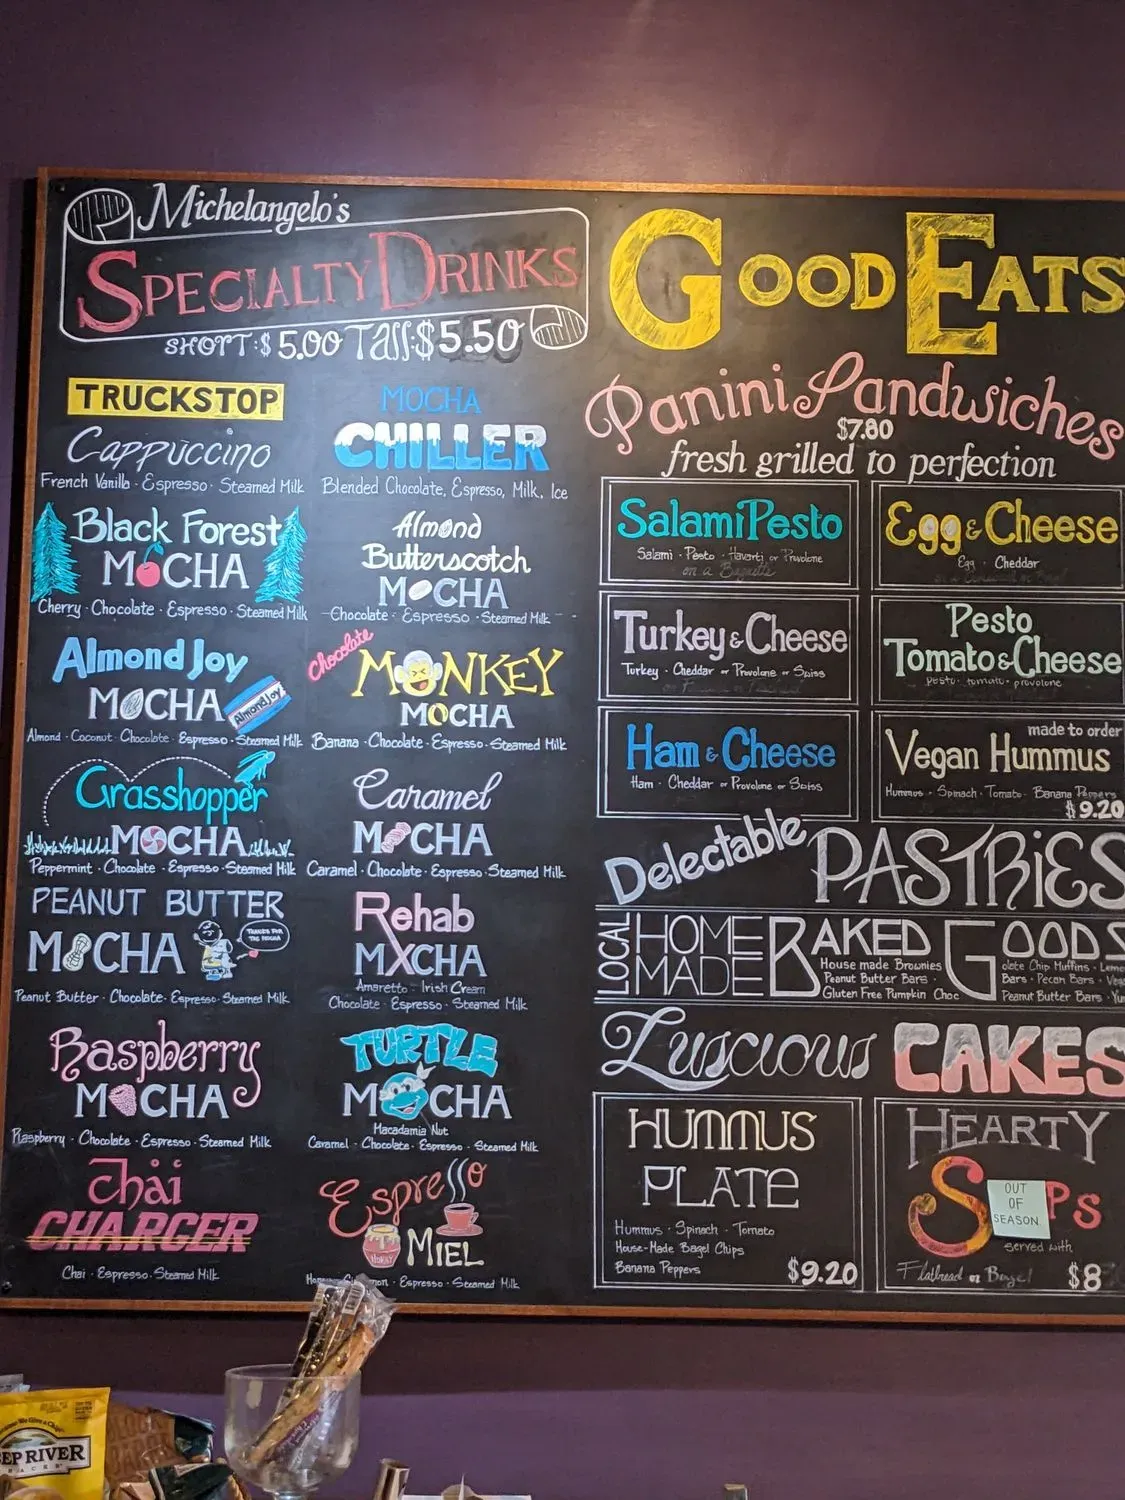 Michelangelo's
SPECIALTY DRINKS
SHORT: $5.00 Tall: $5.50
TRUCKSTOP
Cappuccino
French Vanilla · Espresso · Steamed Milk
Black Forest
MOCHA
Cherry · Chocolate · Espresso · Steamed Milk
Almond Joy
MOCHA
Almond Joy
Almond · Coconut · Chocolate · Espresso · Steamed Milk
Grasshopper
MOCHA
Peppermint · Chocolate · Espresso · Steamed Milk
PEANUT BUTTER
MOCHA
THANKS FOR
THE MOCHA
Peanut Butter · Chocolate · Espresso · Steamed Milk
Raspberry
MOCHA
Raspberry · Chocolate · Espresso · Steamed Milk
Chai
CHARGER
Chai · Espresso · Steamed Milk
MOCHA
CHILLER
Blended Chocolate, Espresso, Milk, Ice
Almond
Butterscotch
MOCHA
Chocolate · Espresso · Steamed Milk
Chocolate
MONKEY
MOCHA
Banana · Chocolate · Espresso · Steamed Milk
Caramel
MOCHA
Caramel · Chocolate · Espresso · Steamed Milk
Rehab
MXCHA
Amaretto - Irish Cream
Chocolate · Espresso · Steamed Milk
TURTLE
MOCHA
Macadamia Nut
Caramel · Chocolate · Espresso · Steamed Milk
Espresso
HONEY
MIEL
Espresso · Steamed Milk
GOOD EATS
Panini Sandwiches
$7.80
fresh grilled to perfection
Salami Pesto
Salami · Pesto · Havarti or Provolone
on a Baguette
Egg & Cheese
Egg · Cheddar
Turkey & Cheese
Turkey · Cheddar or Provolone or Swiss
Pesto
Tomato & Cheese
pesto · tomato · provolone
Ham & Cheese
Ham · Cheddar or Provolone or Swiss
made to order
Vegan Hummus
Hummus · Spinach · Tomato · Banana Peppers
$9.20
Delectable PASTRiES
LOCAL HOME MADE BAKED GOODS
House made Brownies
Peanut Butter Bars ·
Gluten Free Pumpkin Choc
olate Chip Muffins · Lemo
Bars · Pecan Bars · Vega
Peanut Butter Bars · Yu
Luscious CAKES
HUMMUS
PLATE
Hummus · Spinach · Tomato
House-Made Bagel Chips
Banana Peppers
$9.20
HEARTY
S Ps
OUT
OF
SEASON
served with
Flatbread or Bagel $8
EP RIVER